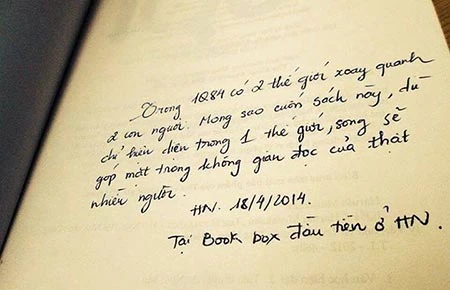 Trong 1Q84 có 2 thế giới xoay quanh
2 con người. Mong sao cuốn sách này, dù
chỉ hiện diện trong 1 thế giới, song sẽ
góp mặt trong không gian đọc của thật
nhiều người.
HN. 18/4/2014.
Tại Book box đầu tiên ở HN.